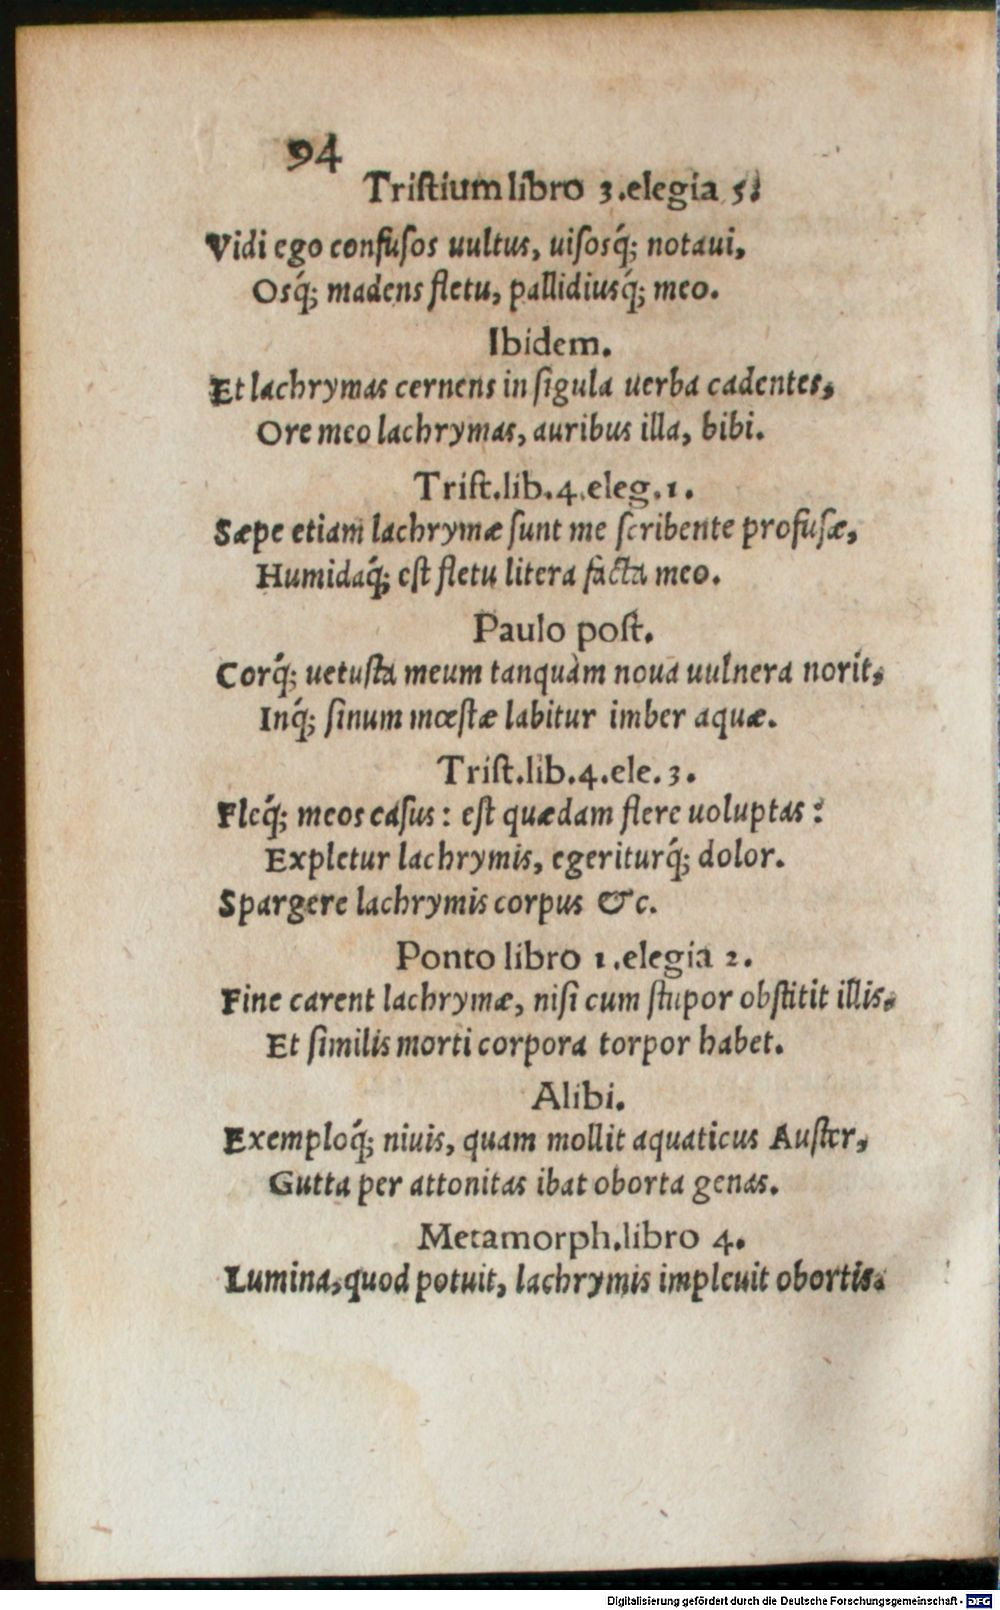 94
Tristium libro 3.elegia 5.
Vidi ego confusos uultus, uisosq́; notaui,
Osq́; madens fletu, pallidiusq́; meo.
Ibidem.
Et lachrymas cernens in sigula uerba cadentes,
Ore meo lachrymas, auribus illa, bibi.
Trist.lib.4.eleg.1.
Sæpe etiam lachrymæ sunt me scribente profusæ,
Humidaq́; est fletu litera facta meo.
Paulo post.
Corq́; uetusta meum tanquàm noua uulnera norit,
Inq́; sinum mœstæ labitur imber aquæ.
Trist.lib.4.ele.3.
Fleq́; meos casus: est quædam flere uoluptas:
Expletur lachrymis, egeriturq́; dolor.
Spargere lachrymis corpus &c.
Ponto libro 1.elegia 2.
Fine carent lachrymæ, nisi cum stupor obstitit illis,
Et similis morti corpora torpor habet.
Alibi.
Exemploq́; niuis, quam mollit aquaticus Auster,
Gutta per attonitas ibat oborta genas.
Metamorph.libro 4.
Lumina, quod potuit, lachrymis impleuit obortis.
Digitalisierung gefördert durch die Deutsche Forschungsgemeinschaft - DFG